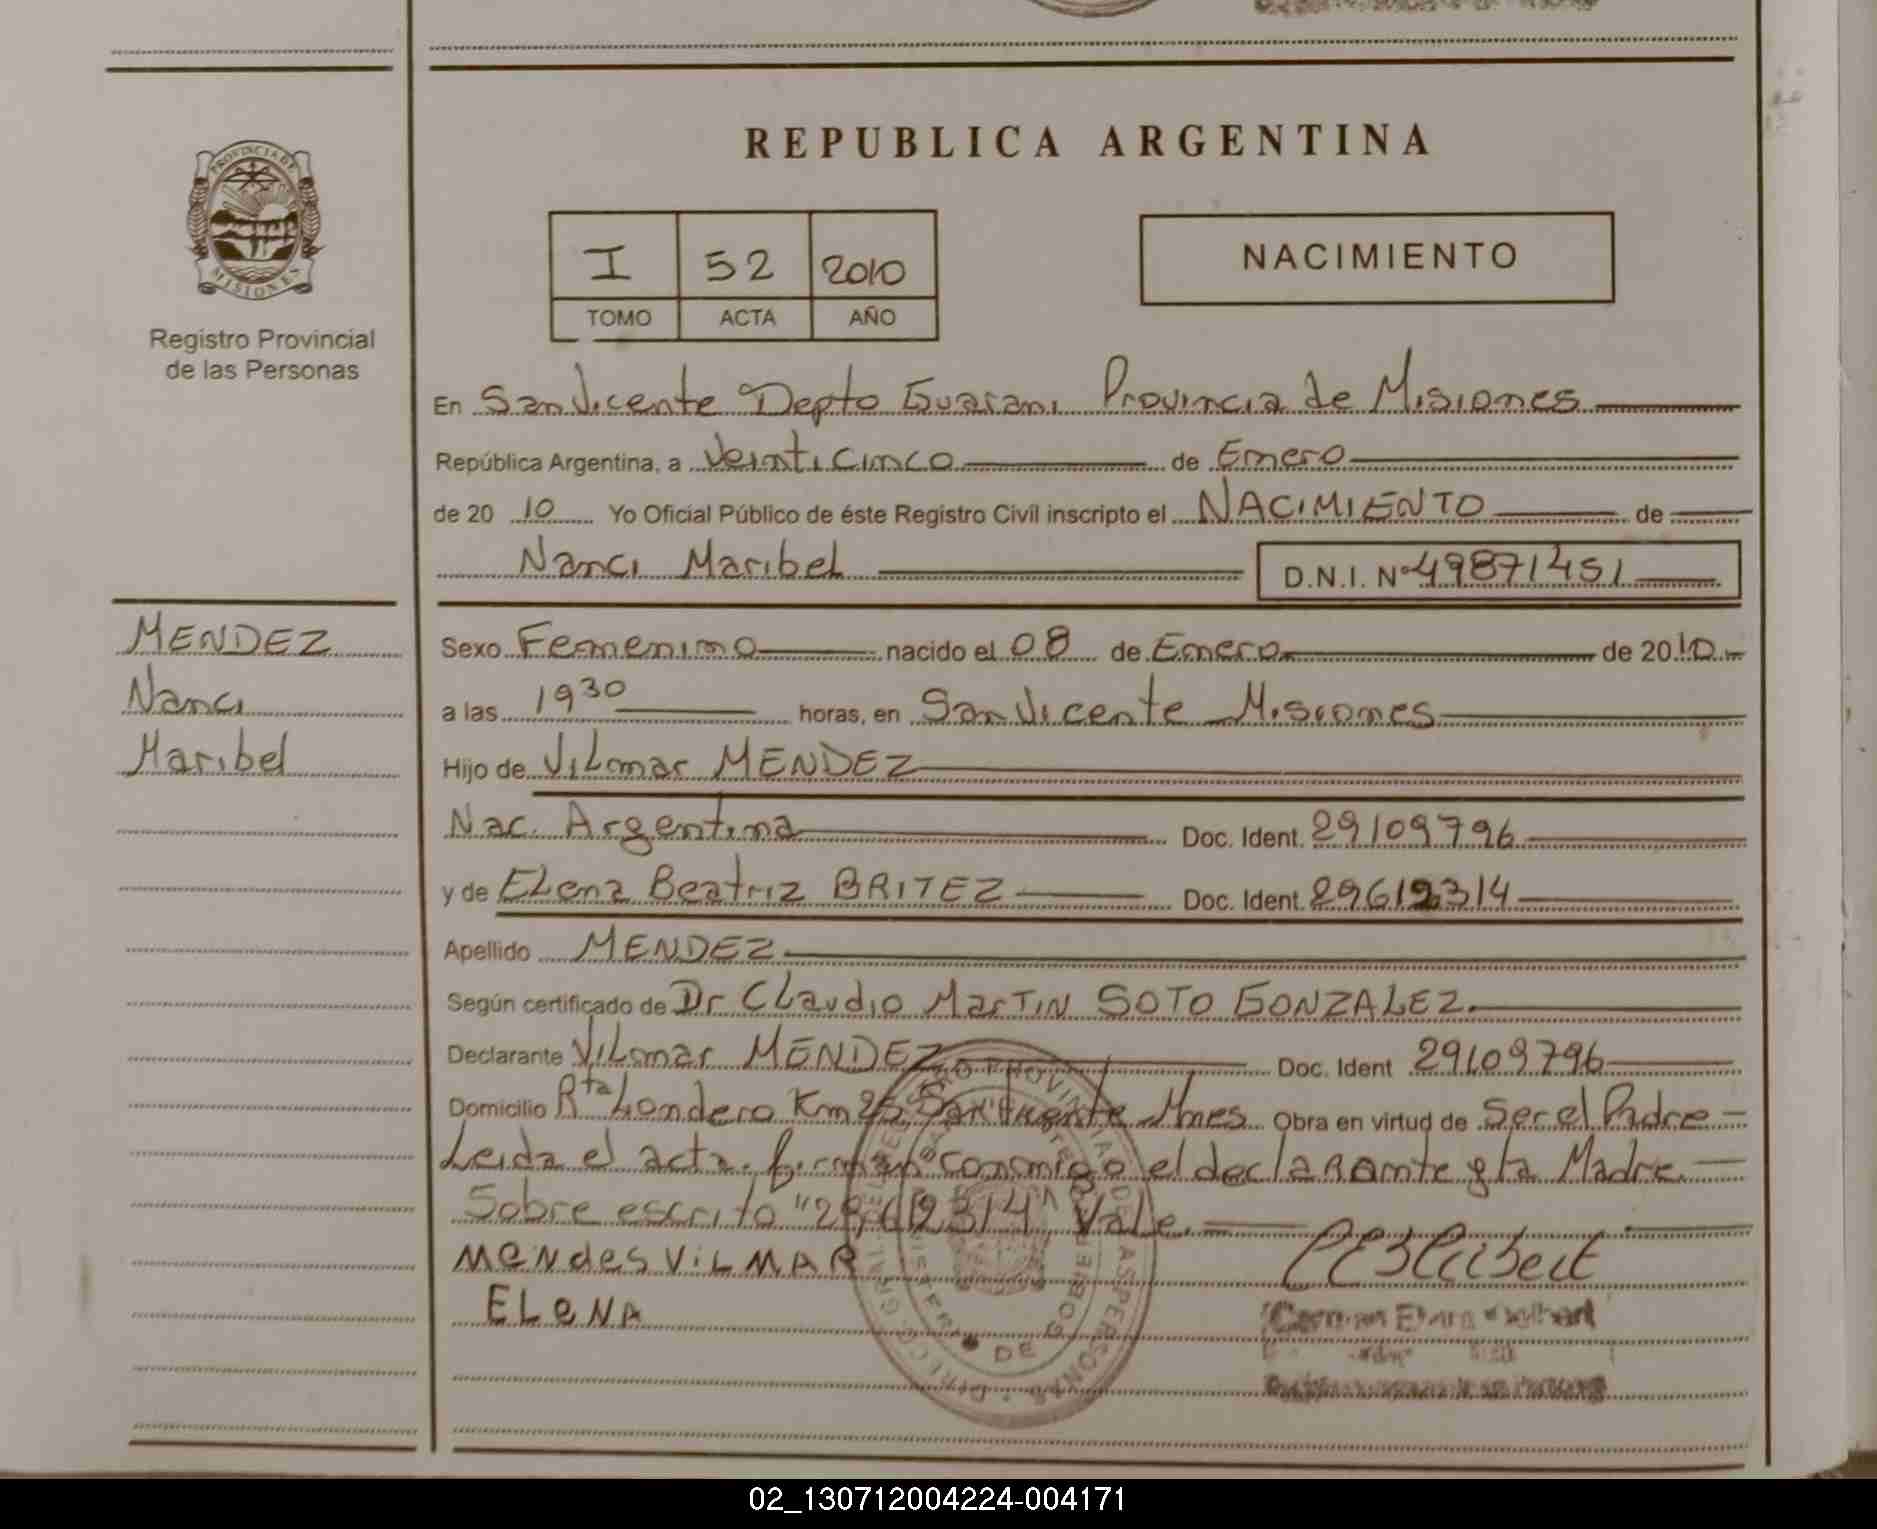 REPUBLICA ARGENTINA
PROVINCIA DE MISIONES
Registro Provincial
de las Personas
I 52 2010
TOMO ACTA AÑO
NACIMIENTO
En San Vicente Depto Guarani Provincia de Misiones
República Argentina, a Veinticinco de Enero
de 20 10 Yo Oficial Público de éste Registro Civil inscripto el NACIMIENTO de
Nanci Maribel D.N.I. Nº 49871451
MENDEZ
Nanci
Maribel
Sexo Femenino nacido el 08 de Enero de 2010
a las 19 30 horas, en San Vicente Misiones
Hijo de Vilmar MENDEZ
Nac. Argentina Doc. Ident. 29109796
y de Elena Beatriz BRITEZ Doc. Ident. 29612314
Apellido MENDEZ
Según certificado de Dr Claudio Martin SOTO GONZALEZ.
Declarante Vilmar MENDEZ Doc. Ident 29109796
Domicilio Rta Londero Km 25 San Vicente Mnes Obra en virtud de Ser el Padre
Leida el acta. firman conmigo el declarante y la Madre.
Sobre escrito "29612314" Vale.
MENdes ViLMAR
ELeNA
DE GOBIERNO
02_130712004224-004171